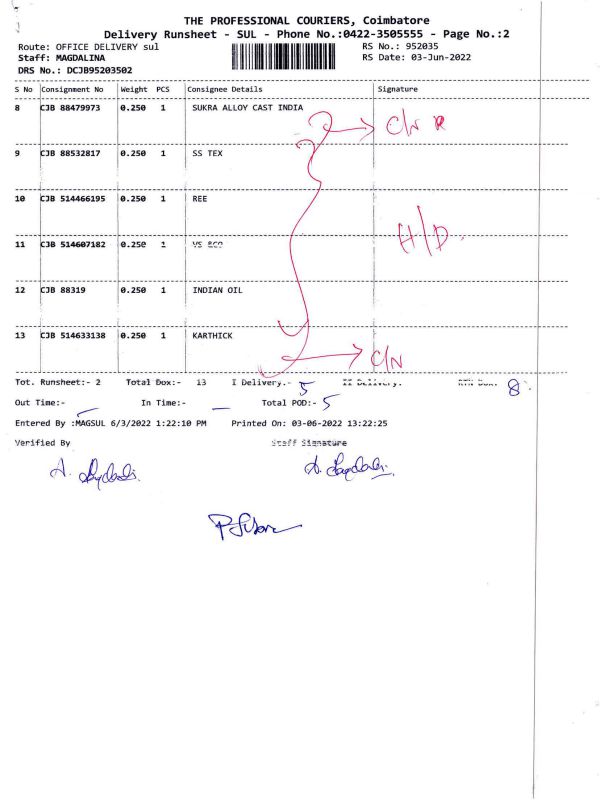 THE PROFESSIONAL COURIERS, Coimbatore
Delivery Runsheet - SUL - Phone No.:0422-3505555 - Page No.:2
Route: OFFICE DELIVERY sul RS No.: 952035
Staff: MAGDALINA RS Date: 03-Jun-2022
DRS No.: DCJB95203502
S No Consignment No Weight PCS Consignee Details Signature
8 CJB 88479973 0.250 1 SUKRA ALLOY CAST INDIA
C/N R
9 CJB 88532817 0.250 1 SS TEX
10 CJB 514466195 0.250 1 REE
11 CJB 514607182 0.250 1 VS ECO
H/D
12 CJB 88319 0.250 1 INDIAN OIL
13 CJB 514633138 0.250 1 KARTHICK
C/N
Tot. Runsheet:- 2 Total Dox:- 13 I Delivery.- 5 II Delivery. RTN Dox. 8
Out Time:- In Time:- Total POD:- 5
Entered By :MAGSUL 6/3/2022 1:22:10 PM Printed On: 03-06-2022 13:22:25
Verified By Staff Signature